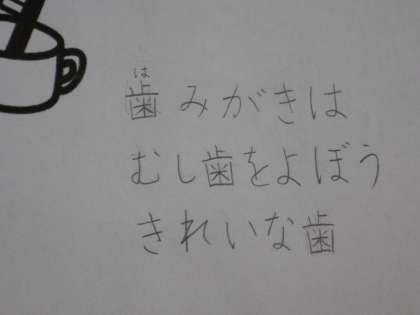 歯みがきは
むし歯をよぼう
きれいな歯